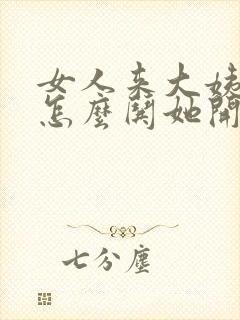 女人来大姨
怎麼關她開
七分塵